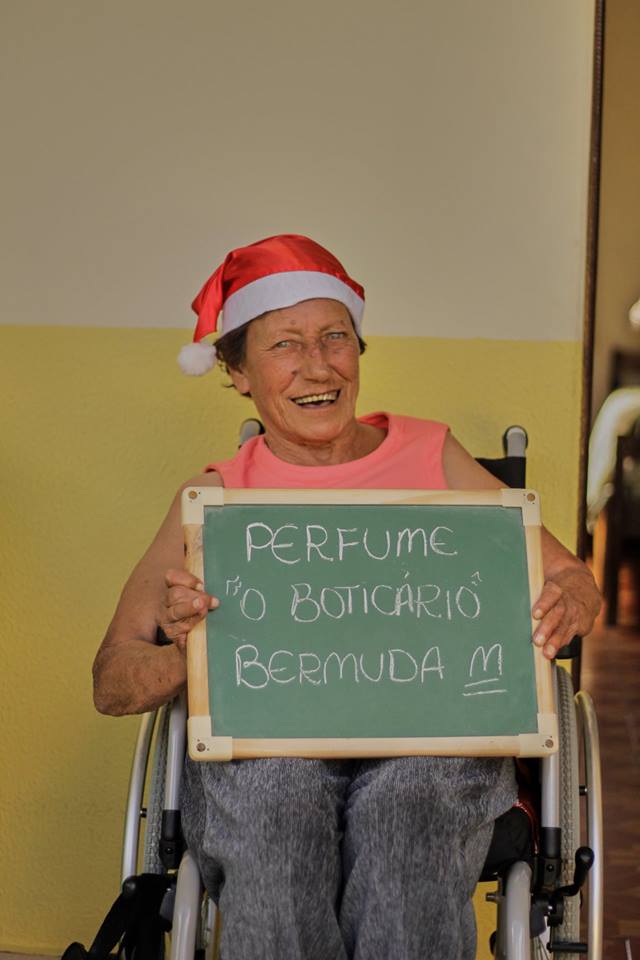 PERFUME
"O BOTICÁRIO"
BERMUDA M